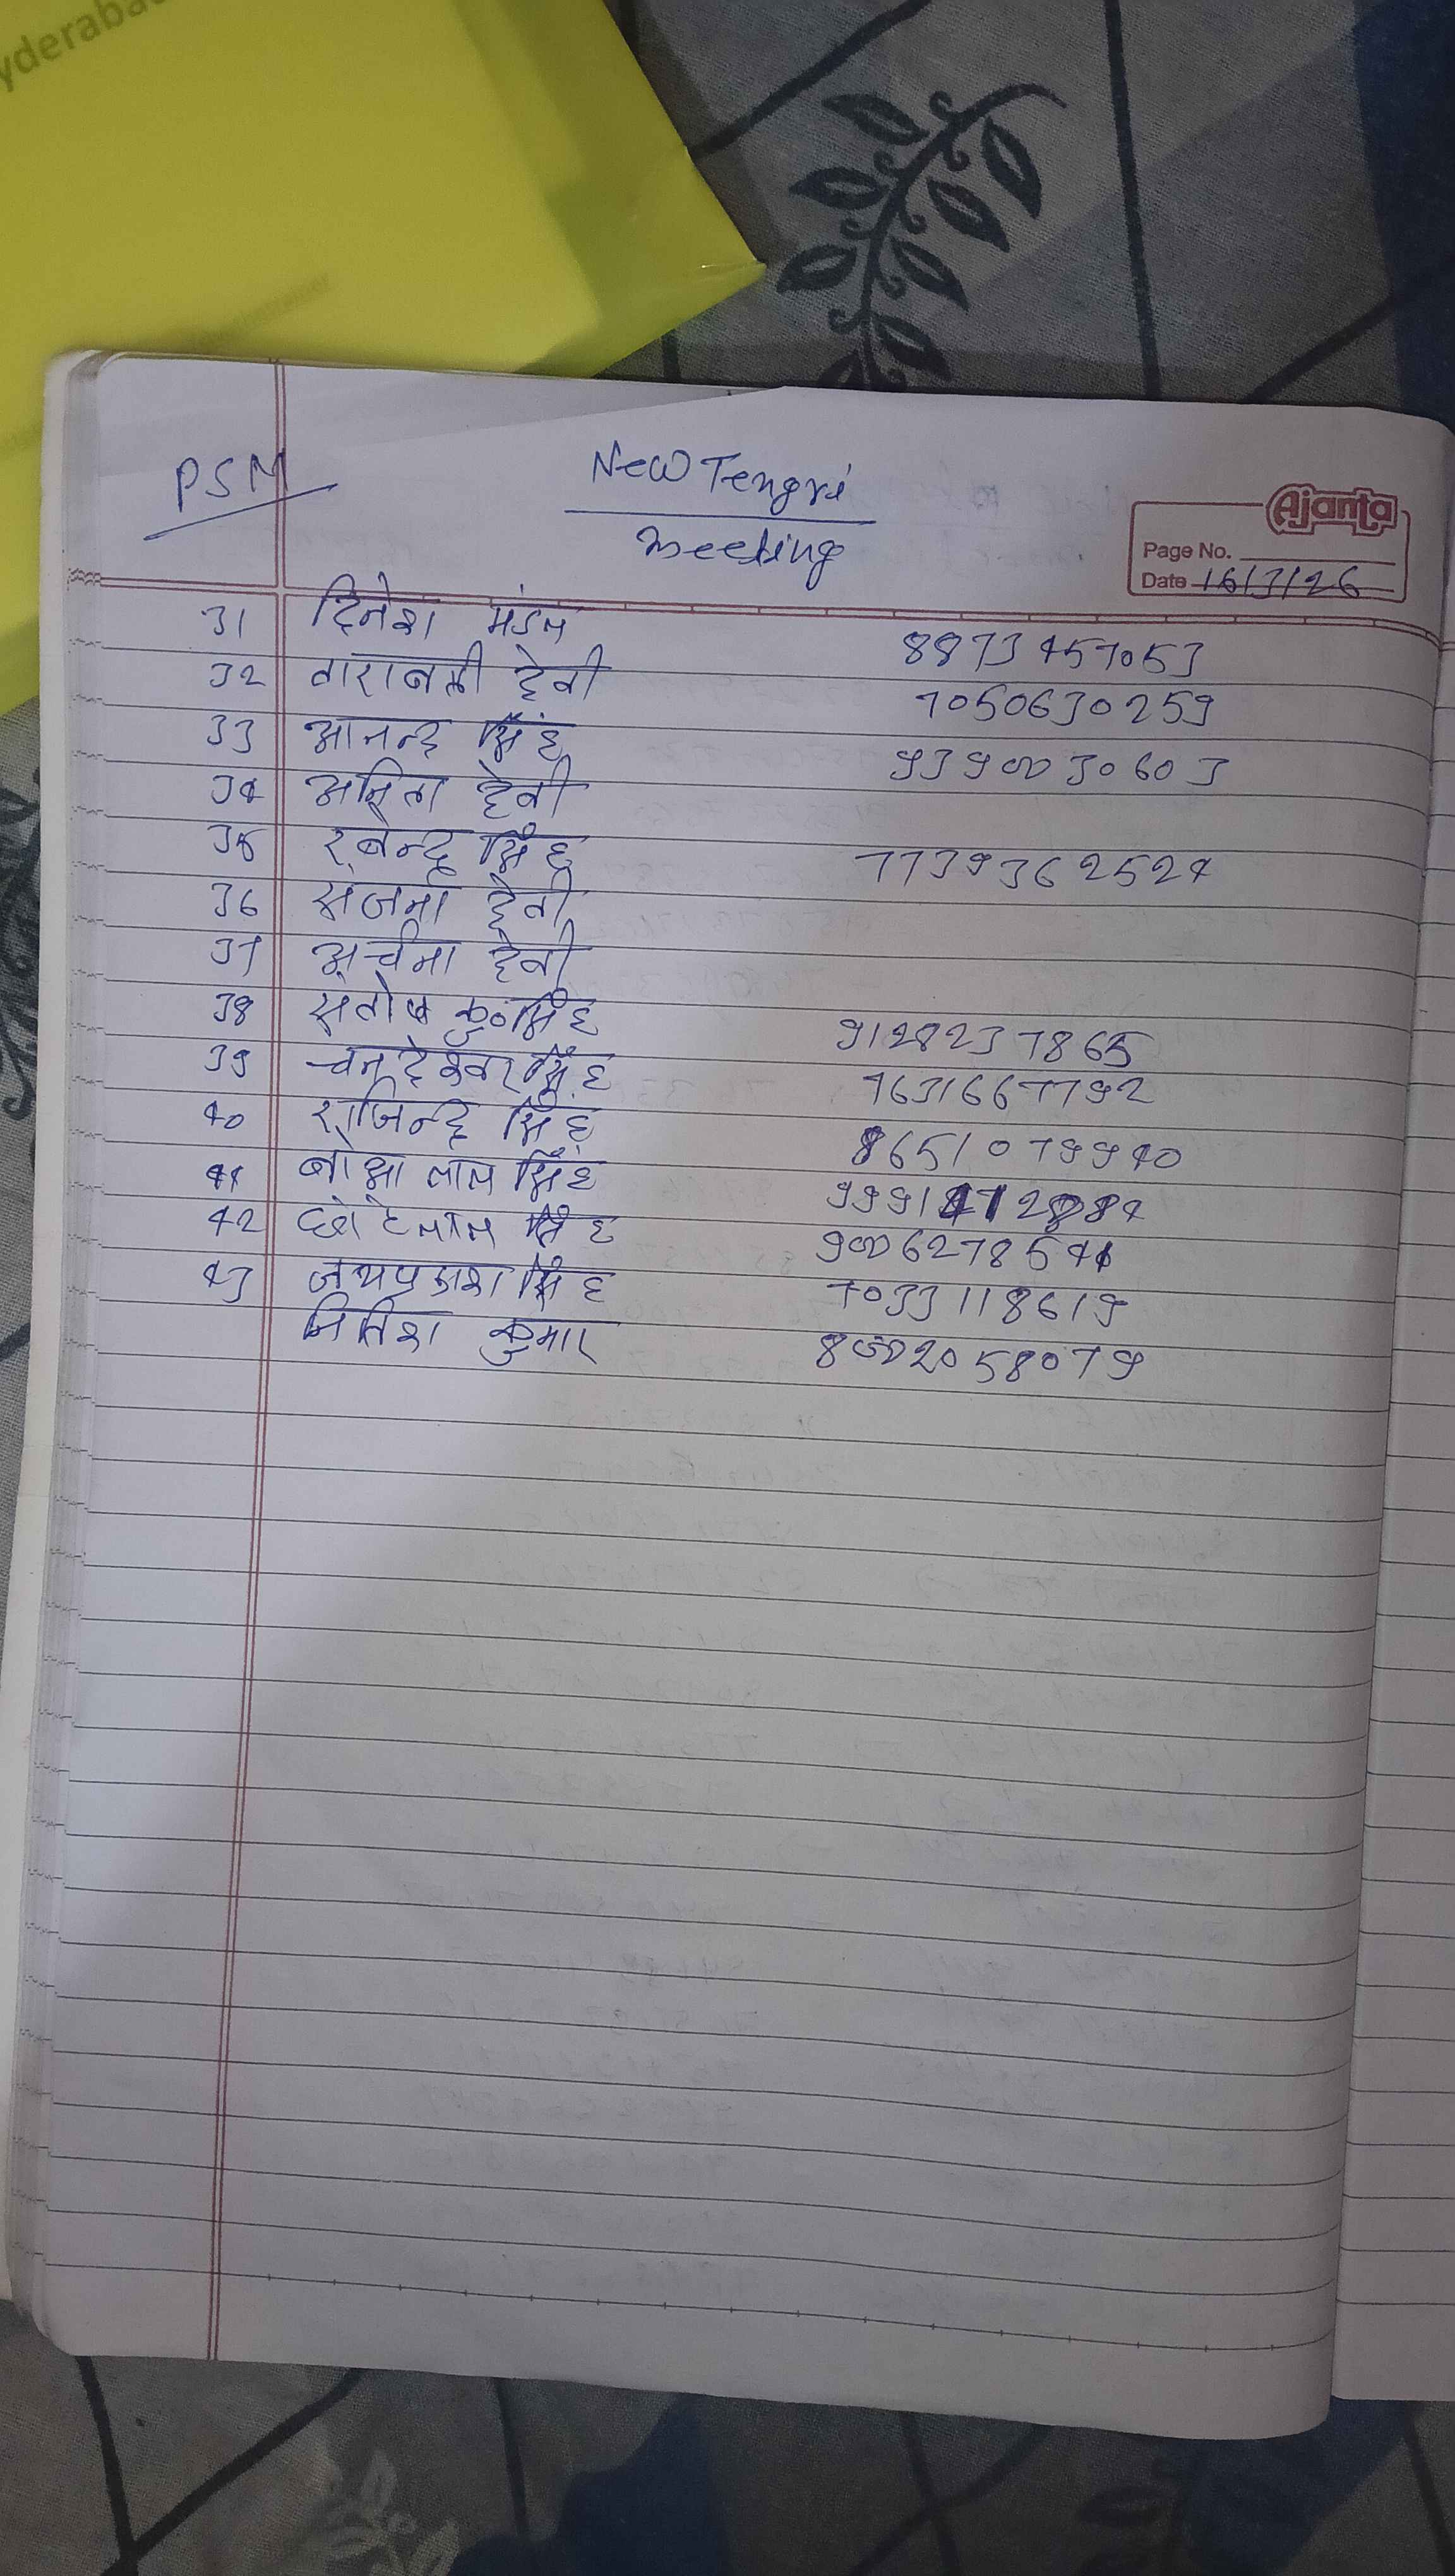 yderaba
PSM
New Tengri
meeting
Ajanta
Page No.
Date 16/3/26
31 दिनेश मंडल 8873457053
32 ताराबती देवी 7050630259
33 आनन्द सिंह 9390030603
34 अनिता देवी
35 रबेन्द्र सिंह 7739362524
36 संजना देवी
37 अर्चना देवी
38 संतोष कु० सिंह 9128237865
39 चन्देश्वर सिंह 7631667792
40 राजिन्द्र सिंह 8651079940
41 बोआ लाल सिंह
42 छोटे लाल सिंह 9006278541
43 जयप्रकाश सिंह 7033118619
नितिश कुमार 8002058079